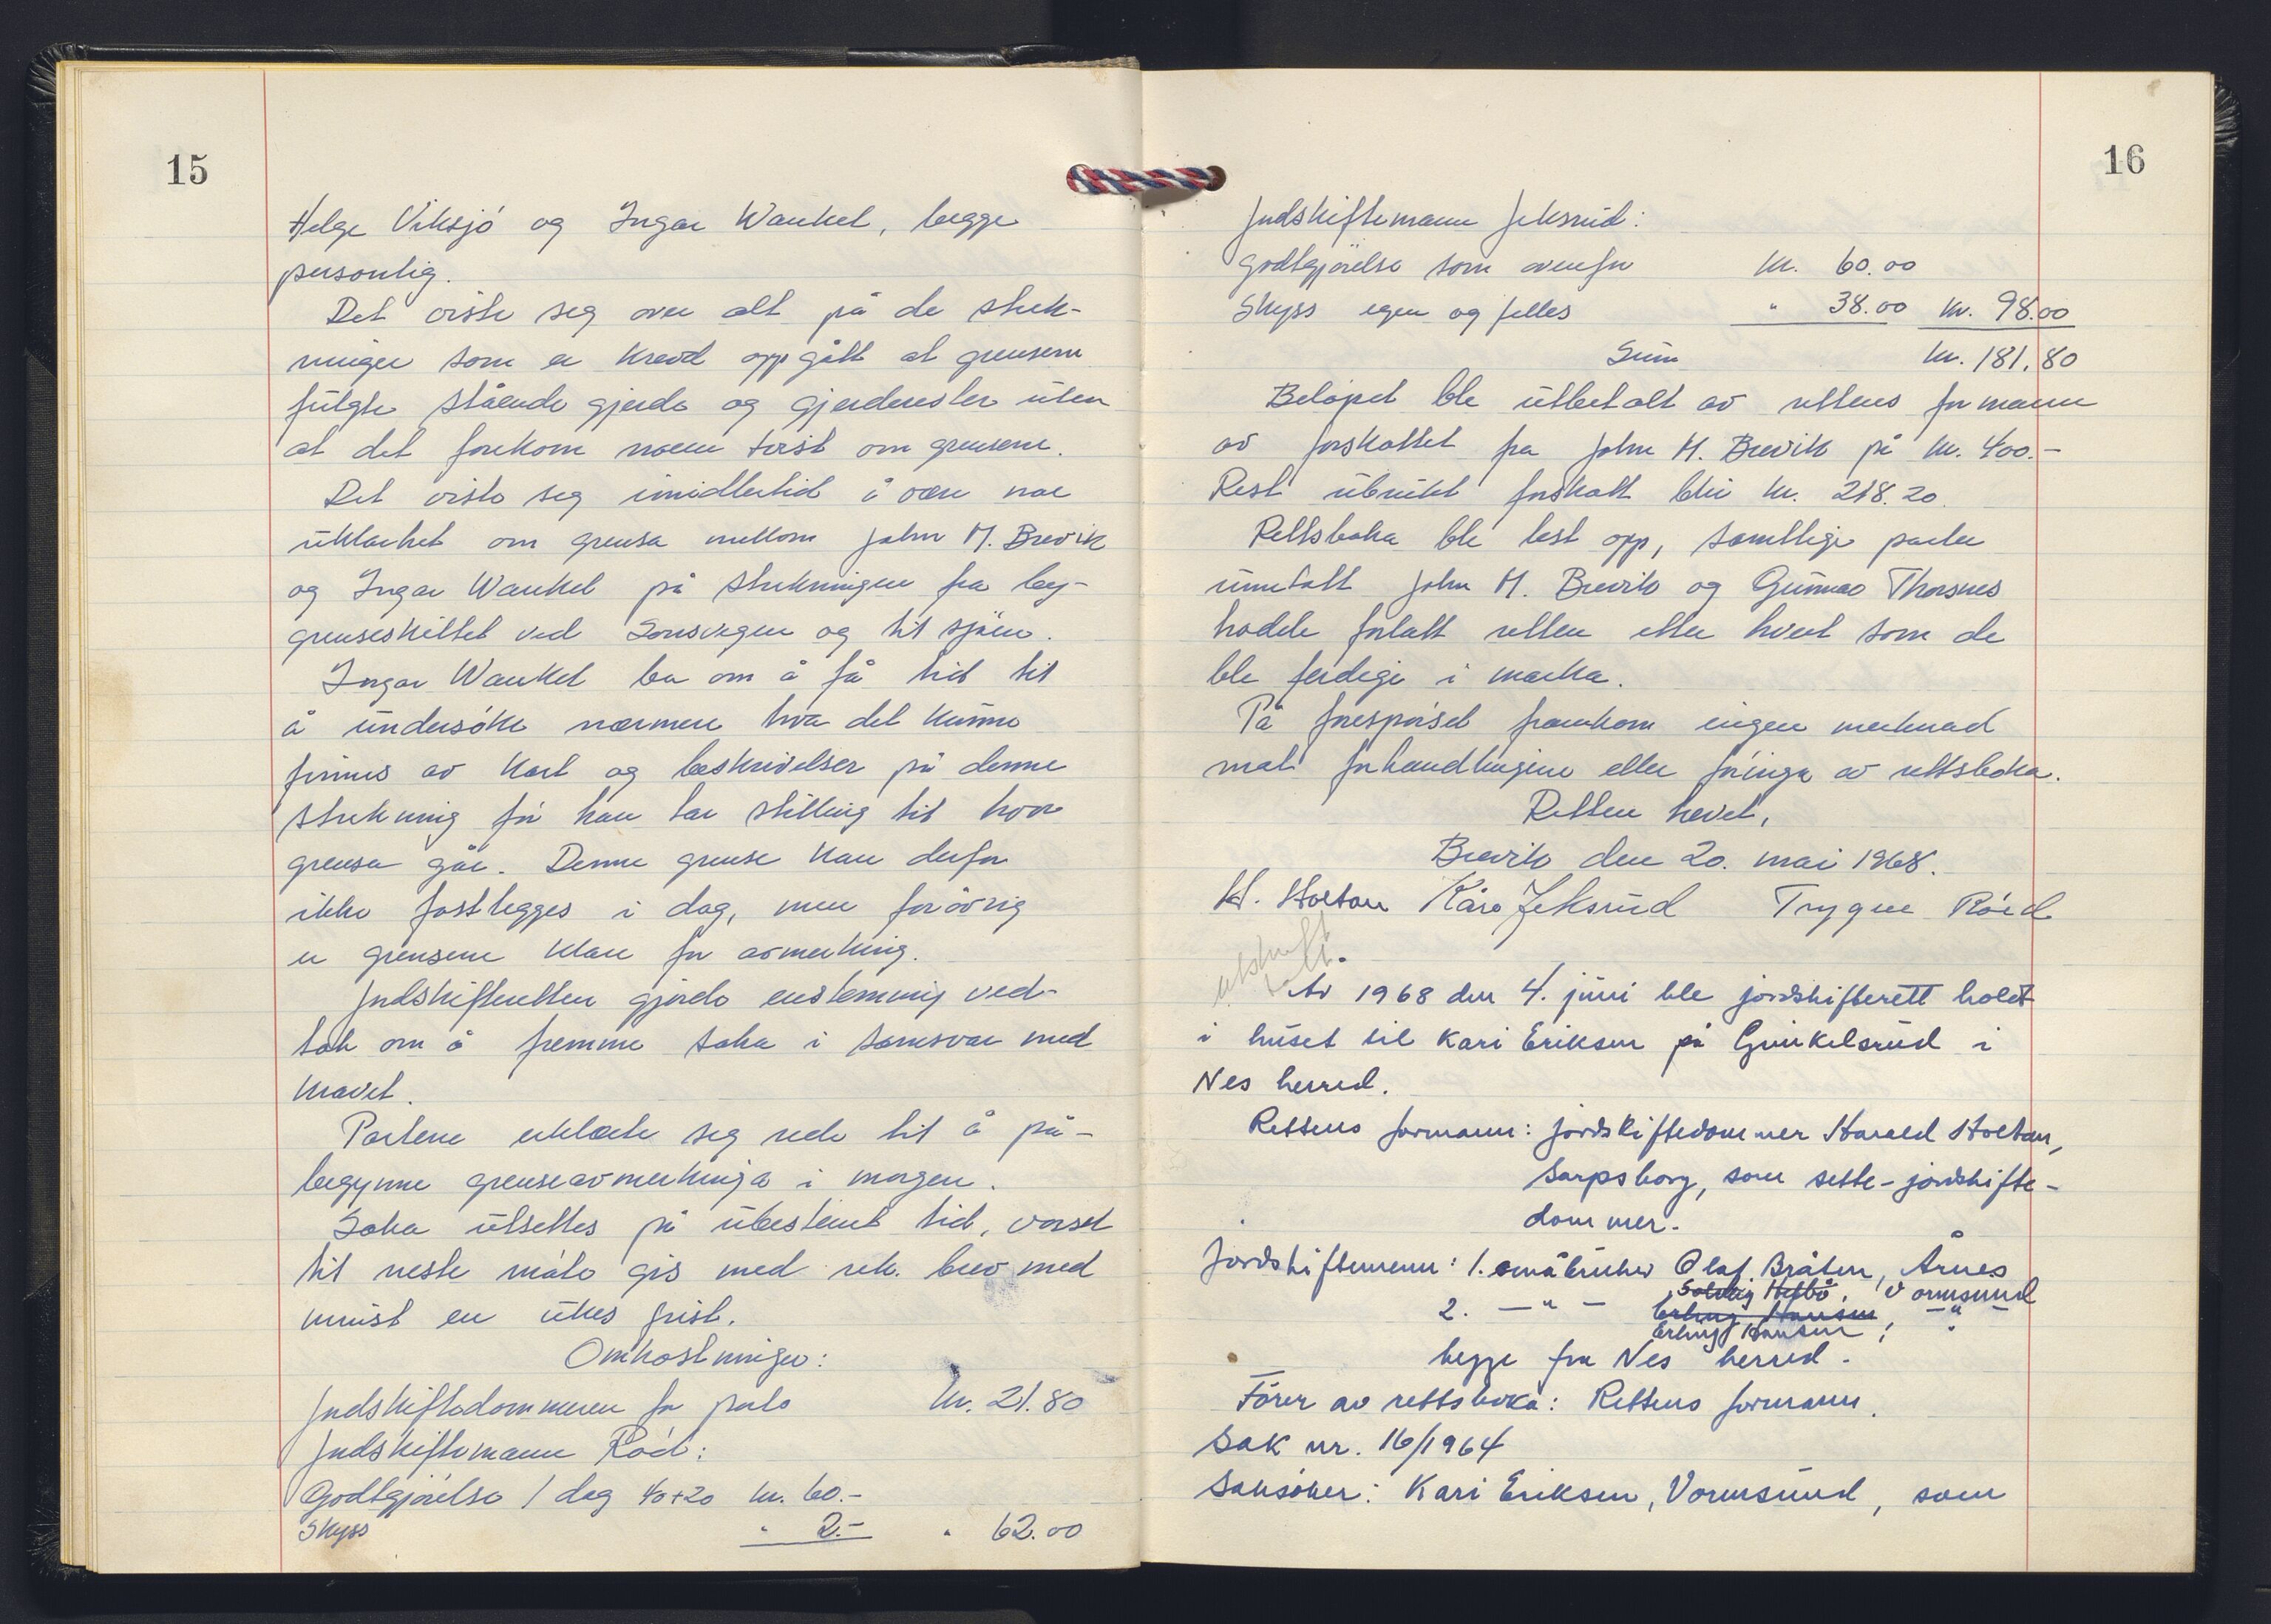 15
Helge Viksjö og Ingar Wankel, begge
personlig.
Det viste seg over alt på de strek-
ninger som er krevd oppgått at grensene
fulgte stående gjerde og gjerderester uten
at det forekom noen tvist om grensene.
Det viste seg imidlertid å være noe
uklarhet om grensa mellom John M. Brevik
og Ingar Wankel på strekningen fra by-
grenseskiltet ved Sonsvegen og til sjöen.
Ingar Wankel ba om å få tid til
å undersöke nærmere hva det kunne
finnes av kart og beskrivelser på denne
strekning för han tar stilling til hvor
grensa går. Denne grense kan derfor
ikke fastlegges i dag, men forövrig
er grensene klare for avmerking.
Jordskifteretten gjorde enstemmig ved-
tak om å fremme saka i samsvar med
kravet.
Partene erklærte seg rede til å på-
begynne grenseavmerkinga i morgen.
Saka utsettes på ubestemt tid, varsel
til neste möte gis med rek. brev med
minst en ukes frist.
Omkostninger:
Jordskiftedommeren for porto kr. 21.80
Jordskiftemann Röed:
Godtgjörelse 1 dag 40+20 kr. 60.-
Skyss " 2.- " 62.00
16
Jordskiftemann Jeksrud:
Godtgjörelse som ovenfor kr. 60.00
Skyss egen og felles " 38.00 kr. 98.00
Sum kr. 181.80
Belöpet ble utbetalt av rettens formann
av forskottet fra John M. Brevik på kr. 400.-
Rest ubrukt forskott blir kr. 218.20.
Rettsboka ble lest opp, samtlige parter
unntatt John M. Brevik og Gunnar Thorsnes
hadde forlatt retten etter hvert som de
ble ferdige i marka.
På forespörsel framkom ingen merknad
mot forhandlingene eller föringa av rettsboka.
Retten hevet,
Brevik den 20. mai 1968.
H. Holtan Kåre Jeksrud Trygve Röed
utskrift
sendt.
År 1968 den 4. juni ble jordskifterett holdt
i huset til Kari Eriksen på Gunkelsrud i
Nes herred.
Rettens formann: jordskiftedommer Harald Holtan,
Sarpsborg, som sette-jordskifte-
dommer.
Jordskiftemenn: 1. småbruker Olaf Bråten, Årnes
Solveig Heftö, Vormsund
2. — " — Erling Hansen, — " —
Erling Hansen,
begge fra Nes herred.
Förer av rettsboka: Rettens formann.
Sak nr. 16/1964
Saksöker: Kari Eriksen, Vormsund, som